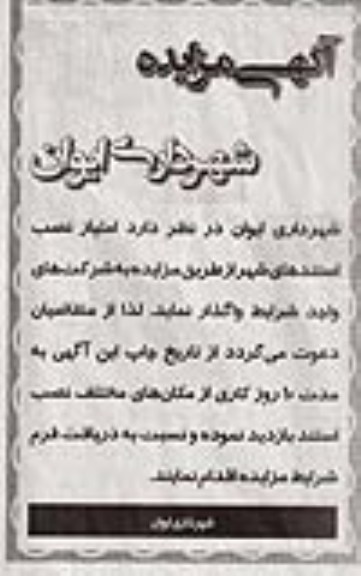 آگهی مزایده
شهرداری ایوان
شهرداری ایوان در نظر دارد امتیاز نصب
استندهای شهر از طریق مزایده به شرکت‌های
واجد شرایط واگذار نماید. لذا از متقاضیان
دعوت می‌گردد از تاریخ چاپ این آگهی به
مدت ۱۰ روز کاری از مکان‌های مختلف نصب
استند بازدید نموده و نسبت به دریافت فرم
شرایط مزایده اقدام نمایند.
شهرداری ایوان